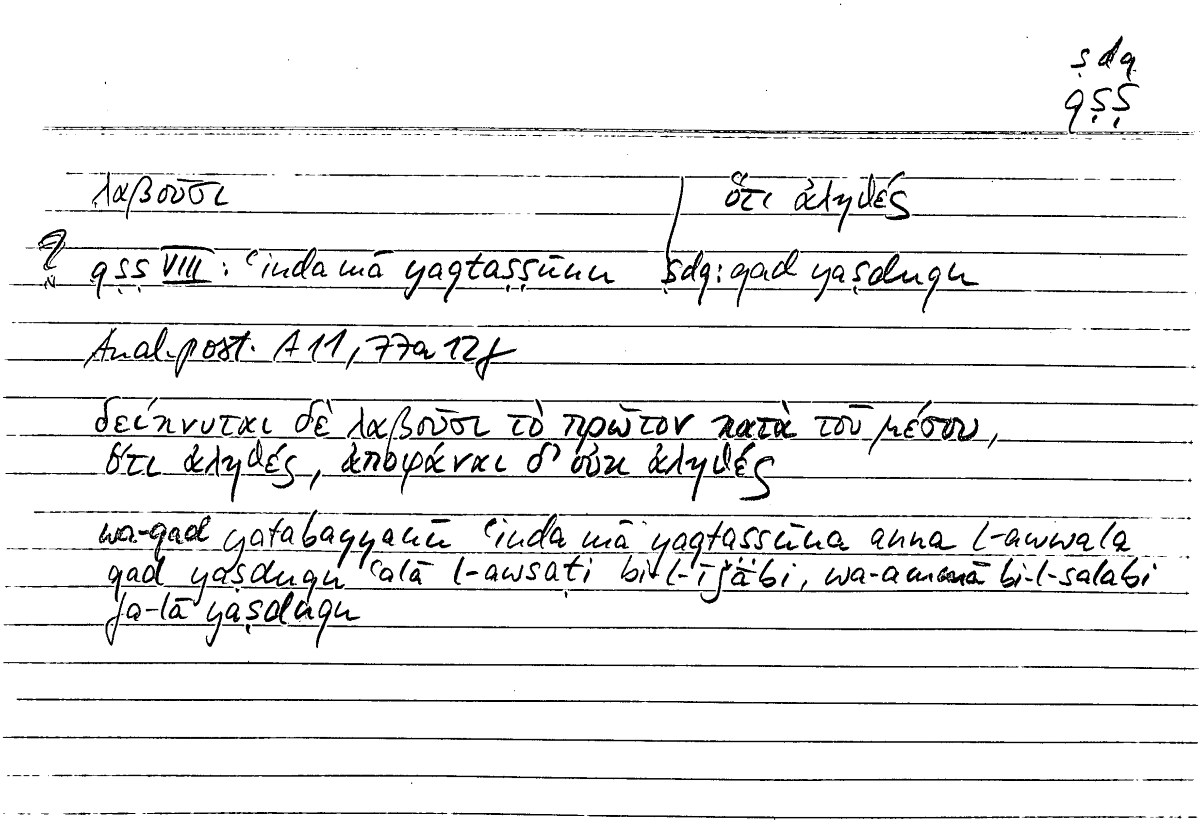 ṣdq
qṣṣ
λαβοῦσι ὅτι ἀληθές
qṣṣ VIII: ʿinda mā yaqtaṣṣūna ṣdq: qad yaṣduqu
Anal. post. A 11, 77a 12f
δείκνυται δὲ λαβοῦσι τὸ πρῶτον κατὰ τοῦ μέσου,
ὅτι ἀληθές, ἀποφάναι δ' οὐκ ἀληθές
wa-qad yatabayyanu ʿinda mā yaqtaṣṣūna anna l-awwala
qad yaṣduqu ʿalā l-awsaṭi bi-l-īǧābi, wa-ammā bi-l-salabi
fa-lā yaṣduqu